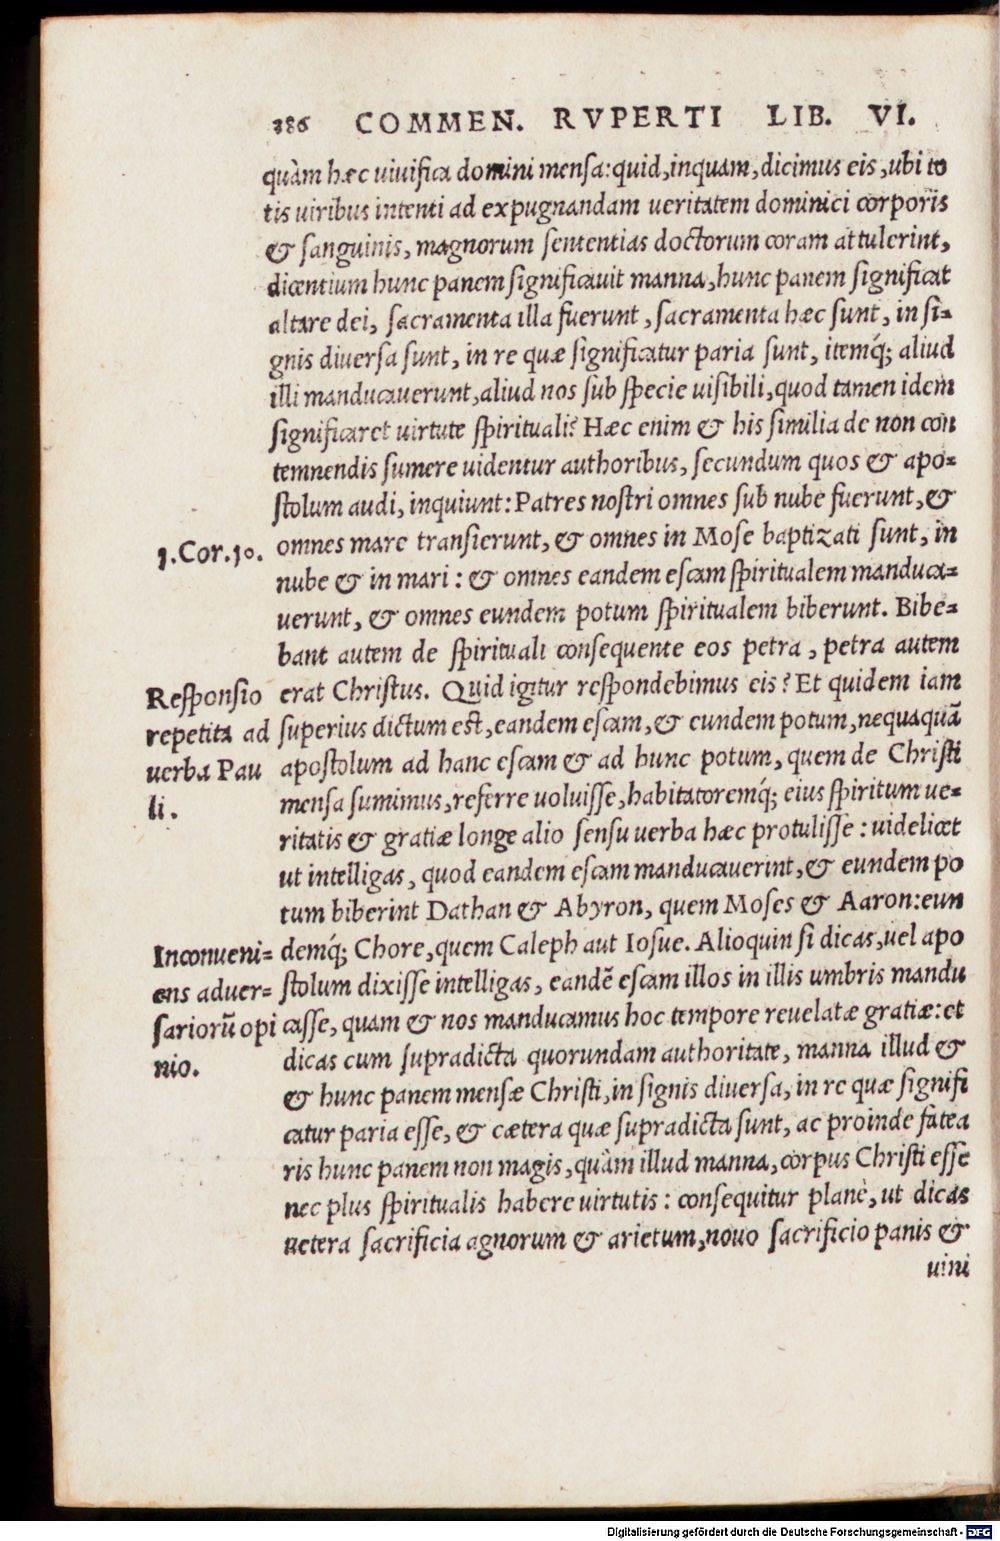 386 COMMEN. RVPERTI LIB. VI.
quàm hæc uiuifica domini mensa: quid, inquam, dicimus eis, ubi to
tis uiribus intenti ad expugnandam ueritatem dominici corporis
& sanguinis, magnorum sententias doctorum coram attulerint,
dicentium hunc panem significauit manna, hunc panem significat
altare dei, sacramenta illa fuerunt, sacramenta hæc sunt, in si-
gnis diuersa sunt, in re quæ significatur paria sunt, itemq́; aliud
illi manducauerunt, aliud nos sub specie uisibili, quod tamen idem
significaret uirtute spirituali? Hæc enim & his similia de non con
temnendis sumere uidentur authoribus, secundum quos & apo-
stolum audi, inquiunt: Patres nostri omnes sub nube fuerunt, &
1. Cor. 10.
omnes mare transierunt, & omnes in Mose baptizati sunt, in
nube & in mari: & omnes eandem escam spiritualem manduca-
uerunt, & omnes eundem potum spiritualem biberunt. Bibe-
bant autem de spirituali consequente eos petra, petra autem
Responsio
repetita ad
uerba Pau
li.
erat Christus. Quid igitur respondebimus eis? Et quidem iam
superius dictum est, eandem escam, & eundem potum, nequaquã
apostolum ad hanc escam & ad hunc potum, quem de Christi
mensa sumimus, referre uoluisse, habitatoremq́; eius spiritum ue-
ritatis & gratiæ longe alio sensu uerba hæc protulisse: uidelicet
ut intelligas, quod eandem escam manducauerint, & eundem po
tum biberint Dathan & Abyron, quem Moses & Aaron: eun
Inconueni-
ens aduer-
sariorũ opi
nio.
demq́; Chore, quem Caleph aut Iosue. Alioquin si dicas, uel apo
stolum dixisse intelligas, eandẽ escam illos in illis umbris mandu
casse, quam & nos manducamus hoc tempore reuelatæ gratiæ: et
dicas cum supradicta quorundam authoritate, manna illud &
& hunc panem mensæ Christi, in signis diuersa, in re quæ signifi
catur paria esse, & cætera quæ supradicta sunt, ac proinde fatea
ris hunc panem non magis, quàm illud manna, corpus Christi esse
nec plus spiritualis habere uirtutis: consequitur planè, ut dicas
uetera sacrificia agnorum & arietum, nouo sacrificio panis &
uini
Digitalisierung gefördert durch die Deutsche Forschungsgemeinschaft - DFG